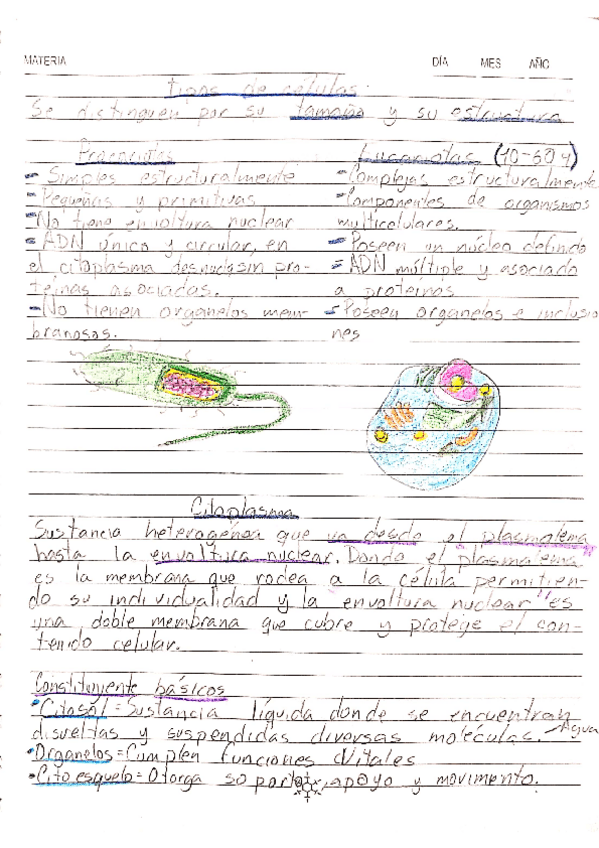 MATERIA DÍA MES AÑO
tipos de células.
Se distinguen por su tamaño y su estructura
Procariotas
- Simples estructuralmente
- Pequeñas y primitivas
- No tiene envoltura nuclear
- ADN único y circular, en
el citoplasma desnudo sin pro-
teínas asociadas.
- No tienen organelos mem-
branosos.
Eucariotas (10-60 µ)
- Complejas estructuralmente
- Componentes de organismos
multicelulares.
- Poseen un núcleo definido
- ADN múltiple y asociado
a proteínas
- Poseen organelos e inclusio
nes
Citoplasma
Sustancia heterogénea que va desde el plasmalema
hasta la envoltura nuclear. Donde el plasmalema
es la membrana que rodea a la célula permitien-
do su individualidad y la envoltura nuclear es
una doble membrana que cubre y protege el con-
tenido celular.
Constituyente básicos
• Citosol = Sustancia líquida donde se encuentran
disueltas y suspendidas diversas moléculas. Agua
• Organelos = Cumplen funciones vitales
• Citoesquelo = Otorga soporte, apoyo y movimento.